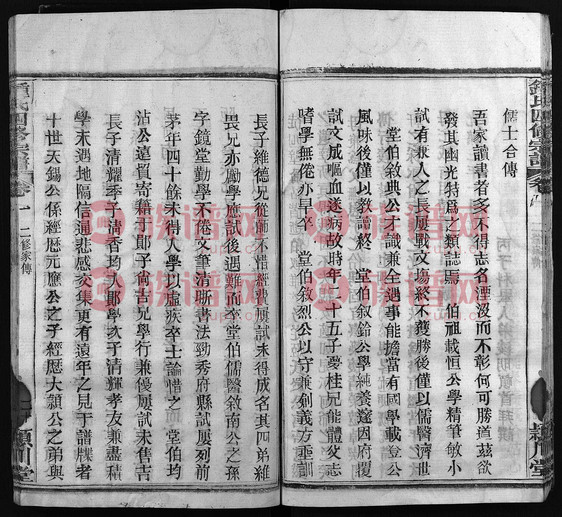 儒士合傳
吾家讀書者多不得志名湮沒而不彰何可勝道茲欲
發其幽光特爲之類誌焉 伯祖載恒公學精筆敏小
試有軼人之長屢戰文塲終不獲勝後僅以儒醫濟世
堂伯敘典公才識兼全遇事能擔當有國學載登公
風味後僅以教讀終 堂伯敘鈴公學純養邃因府覆
試文成嘔血送病故時年二十五子憂桂兄能體父志
嗜學無倦亦早卒 堂伯敘烈公以守兼創義方垂訓
長子維德兄從師不惜經費屢試未得成名其四弟維
畏兄亦勵學應試後遇難而卒堂伯儒醫敘南公之孫
字鏡堂勤學不倦文筆清晰書法勁秀府縣試屢列前
茅年四十餘未得入學以虛疾卒士論惜之 堂伯均
沾公遠賀寄籍江 即子尙吉兄學行兼優屢試未售吉
長子清耀季子清香均公即學亥子清輝孝友兼盡積
學未遇地隔信通悲感交集更有遠年之見于譜牒者
十世天錫公係經歷元應公之子經歷大頴公之弟與
鍾氏四修宗譜
卷十二修家傳
頴川堂
鍾氏四修宗譜
頴川堂
族谱网